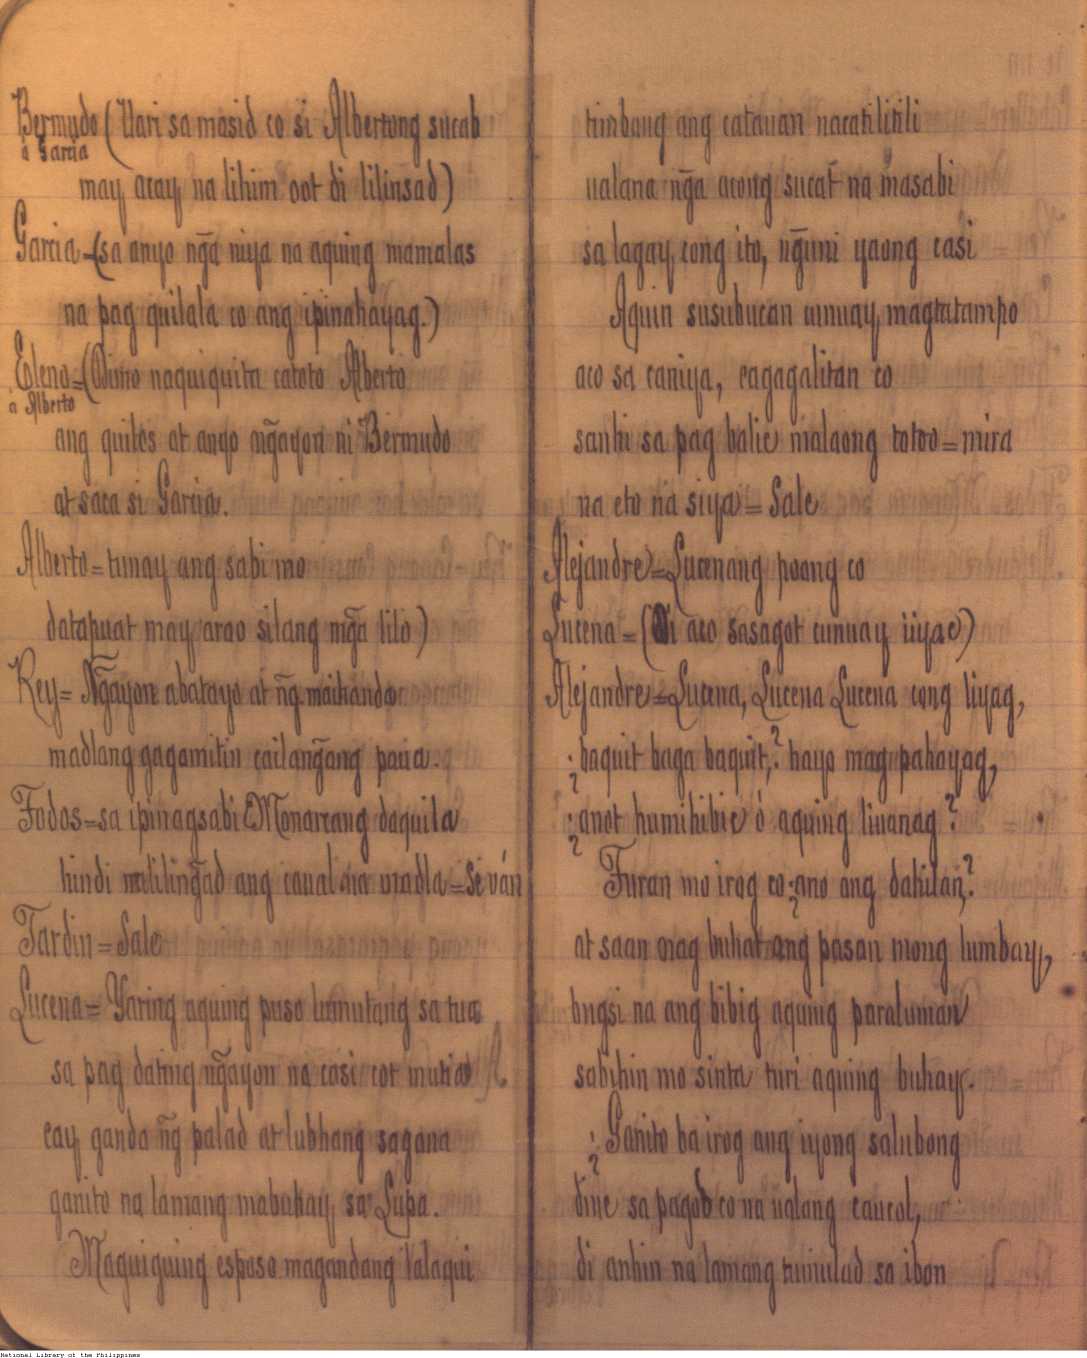 Bermudo (Uari sa masid co si Albertong sucab
a Garcia
may acay na lihim oot di lilinsad)
Garcia=(sa anyo ng̃a niya na aquing mamalas
na pag quilala co ang ipinahayag.)
Eleno=(Dimo naquiquita catoto Alberto
a Alberto
ang quilos at anyo ng̃ayon ni Bermudo
at saca si Garcia.
Alberto=tunay ang sabi mo
datapuat may arao silang mg̃a lilo)
Rey= Ng̃ayon abatayo at ng̃. maihanda
madlang gagamitin cailang̃ang para.
Todos=sa ipinagsabi Monarcang daquila
hindi maliling̃ad ang caual na madla=Se ván
Jardin=Sale
Lucena= Yaring aquing puso lumutang sa tua
sa pag dating ng̃ayon na casi cot mutia
cay ganda ng̃ palad at lubhang sagana
ganito na lamang mabuhay sa Lupa.
Maguiguing esposo magandang lalaqui
timbang ang catauan nacatilitili
ualana ng̃a acong sucat na masabi
sa lagay cong ito, ng̃uni yaong casi
Aquin susubucan cunuay magtatampo
aco sa caniya, cagagalitan co
sanhi sa pag balic malaong totoo=mira
na eto na siya=Sale
Alejandre=Lucenang poong co
Lucena=(Di aco sasagot cunuay iiyac)
Alejandre=Lucena, Lucena Lucena cong liyag,
¿baquit baga baquit,? hayo mag pahayag,
¿anot humihibic ò aquing liuanag?
Turan mo irog co ¿ano ang dahilan,?
at saan nag buhat ang pasan mong lumbay,
bugsi na ang bibig aquing paraluman
sabihin mo sinta turi aquing buhay.
¿Ganito ba irog ang iyong salubong
dine sa pagod co na ualang caucol,
di anhin na lamang tumulad sa ibon
National Library of the Philippines